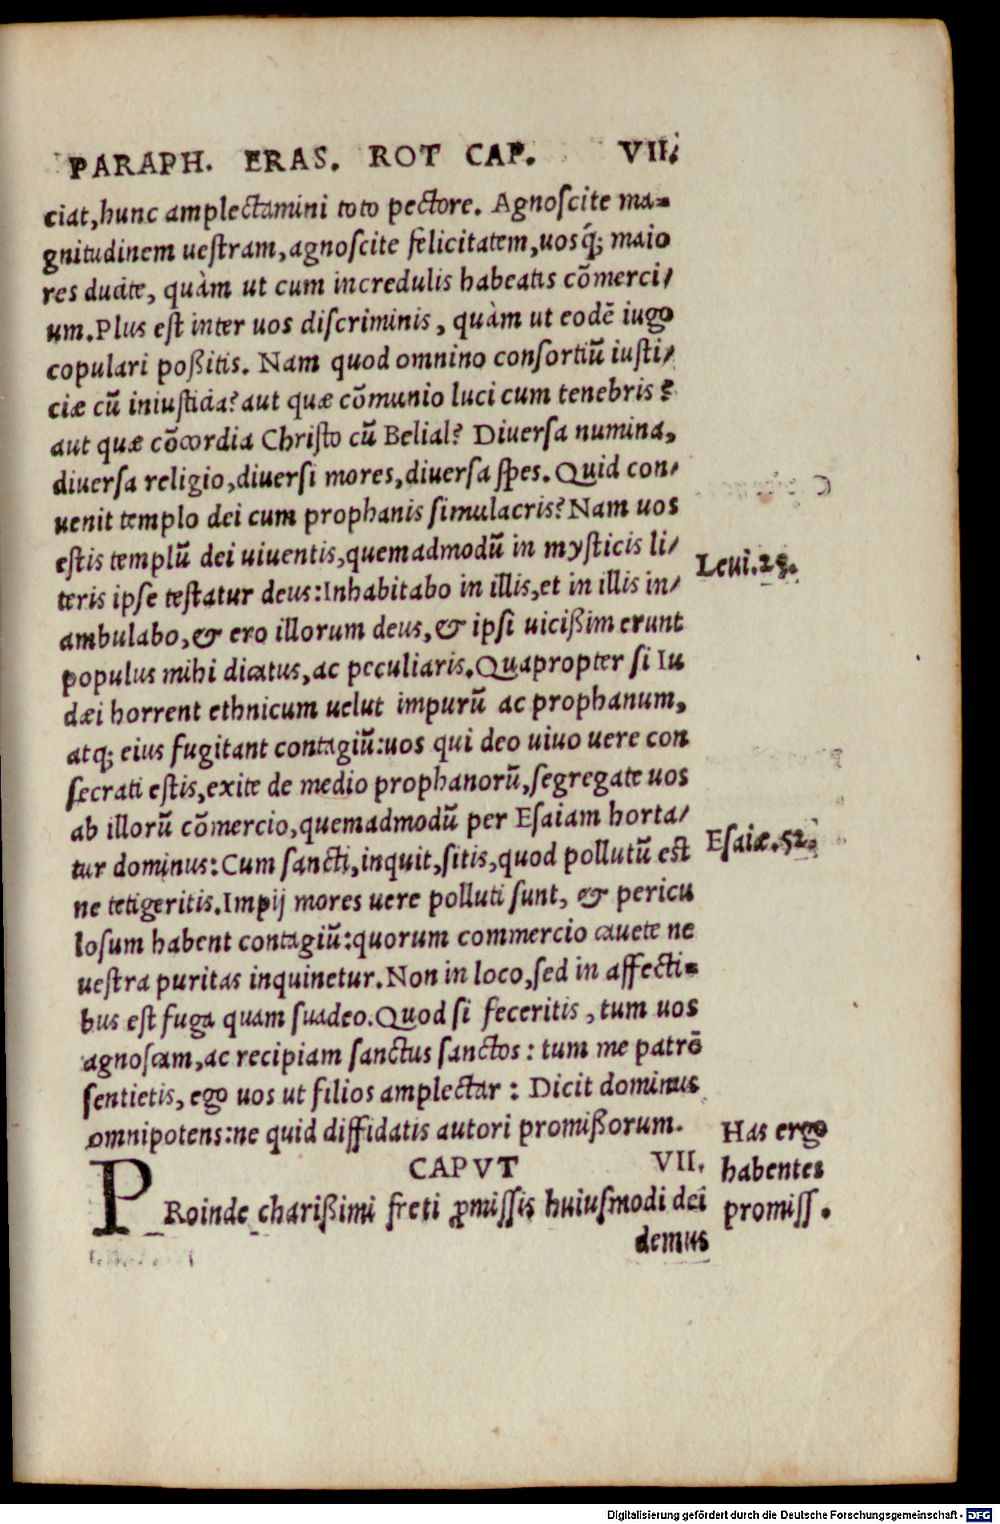 PARAPH. ERAS. ROT CAP. VII.
ciat,hunc amplectamini toto pectore. Agnoſcite ma-
gnitudinem ueſtram,agnoſcite felicitatem,uosq̃; maio
res ducite, quàm ut cum incredulis habeatis cõmerci/
um.Plus eſt inter uos diſcriminis, quàm ut eodẽ iugo
copulari poßitis. Nam quod omnino conſortiũ iuſti/
ciæ cũ iniuſticia? aut quæ cõmunio luci cum tenebris?
aut quæ cõcordia Chriſto cũ Belial? Diuerſa numina,
diuerſa religio,diuerſi mores,diuerſa ſpes. Quid con/
uenit templo dei cum prophanis ſimulacris? Nam uos
eſtis templũ dei uiuentis,quemadmodũ in myſticis li/
teris ipſe teſtatur deus:Inhabitabo in illis,et in illis in/
ambulabo,& ero illorum deus,& ipſi uicißim erunt
populus mihi dicatus,ac peculiaris.Quapropter ſi Iu
dæi horrent ethnicum uelut impurũ ac prophanum,
atq; eius fugitant contagiũ:uos qui deo uiuo uere con
ſecrati eſtis,exite de medio prophanorũ,ſegregate uos
ab illorũ cõmercio,quemadmodũ per Eſaiam horta/
tur dominus:Cum ſancti,inquit,ſitis,quod pollutũ eſt
ne tetigeritis.Impij mores uere polluti ſunt, & pericu
loſum habent contagiũ:quorum commercio cauete ne
ueſtra puritas inquinetur.Non in loco,ſed in affecti-
bus eſt fuga quam ſuadeo.Quod ſi feceritis, tum uos
agnoſcam,ac recipiam ſanctus ſanctos: tum me patrẽ
ſentietis, ego uos ut filios amplectar: Dicit dominus
omnipotens:ne quid diffidatis autori promißorum.
CAPVT VII.
PRoinde charißimi freti ꝓmiſſis huiuſmodi dei
demus
Leui.25.
Eſaiæ.52.
Has ergo
habentes
promiſſ.
Digitalisierung gefördert durch die Deutsche Forschungsgemeinschaft - DFG